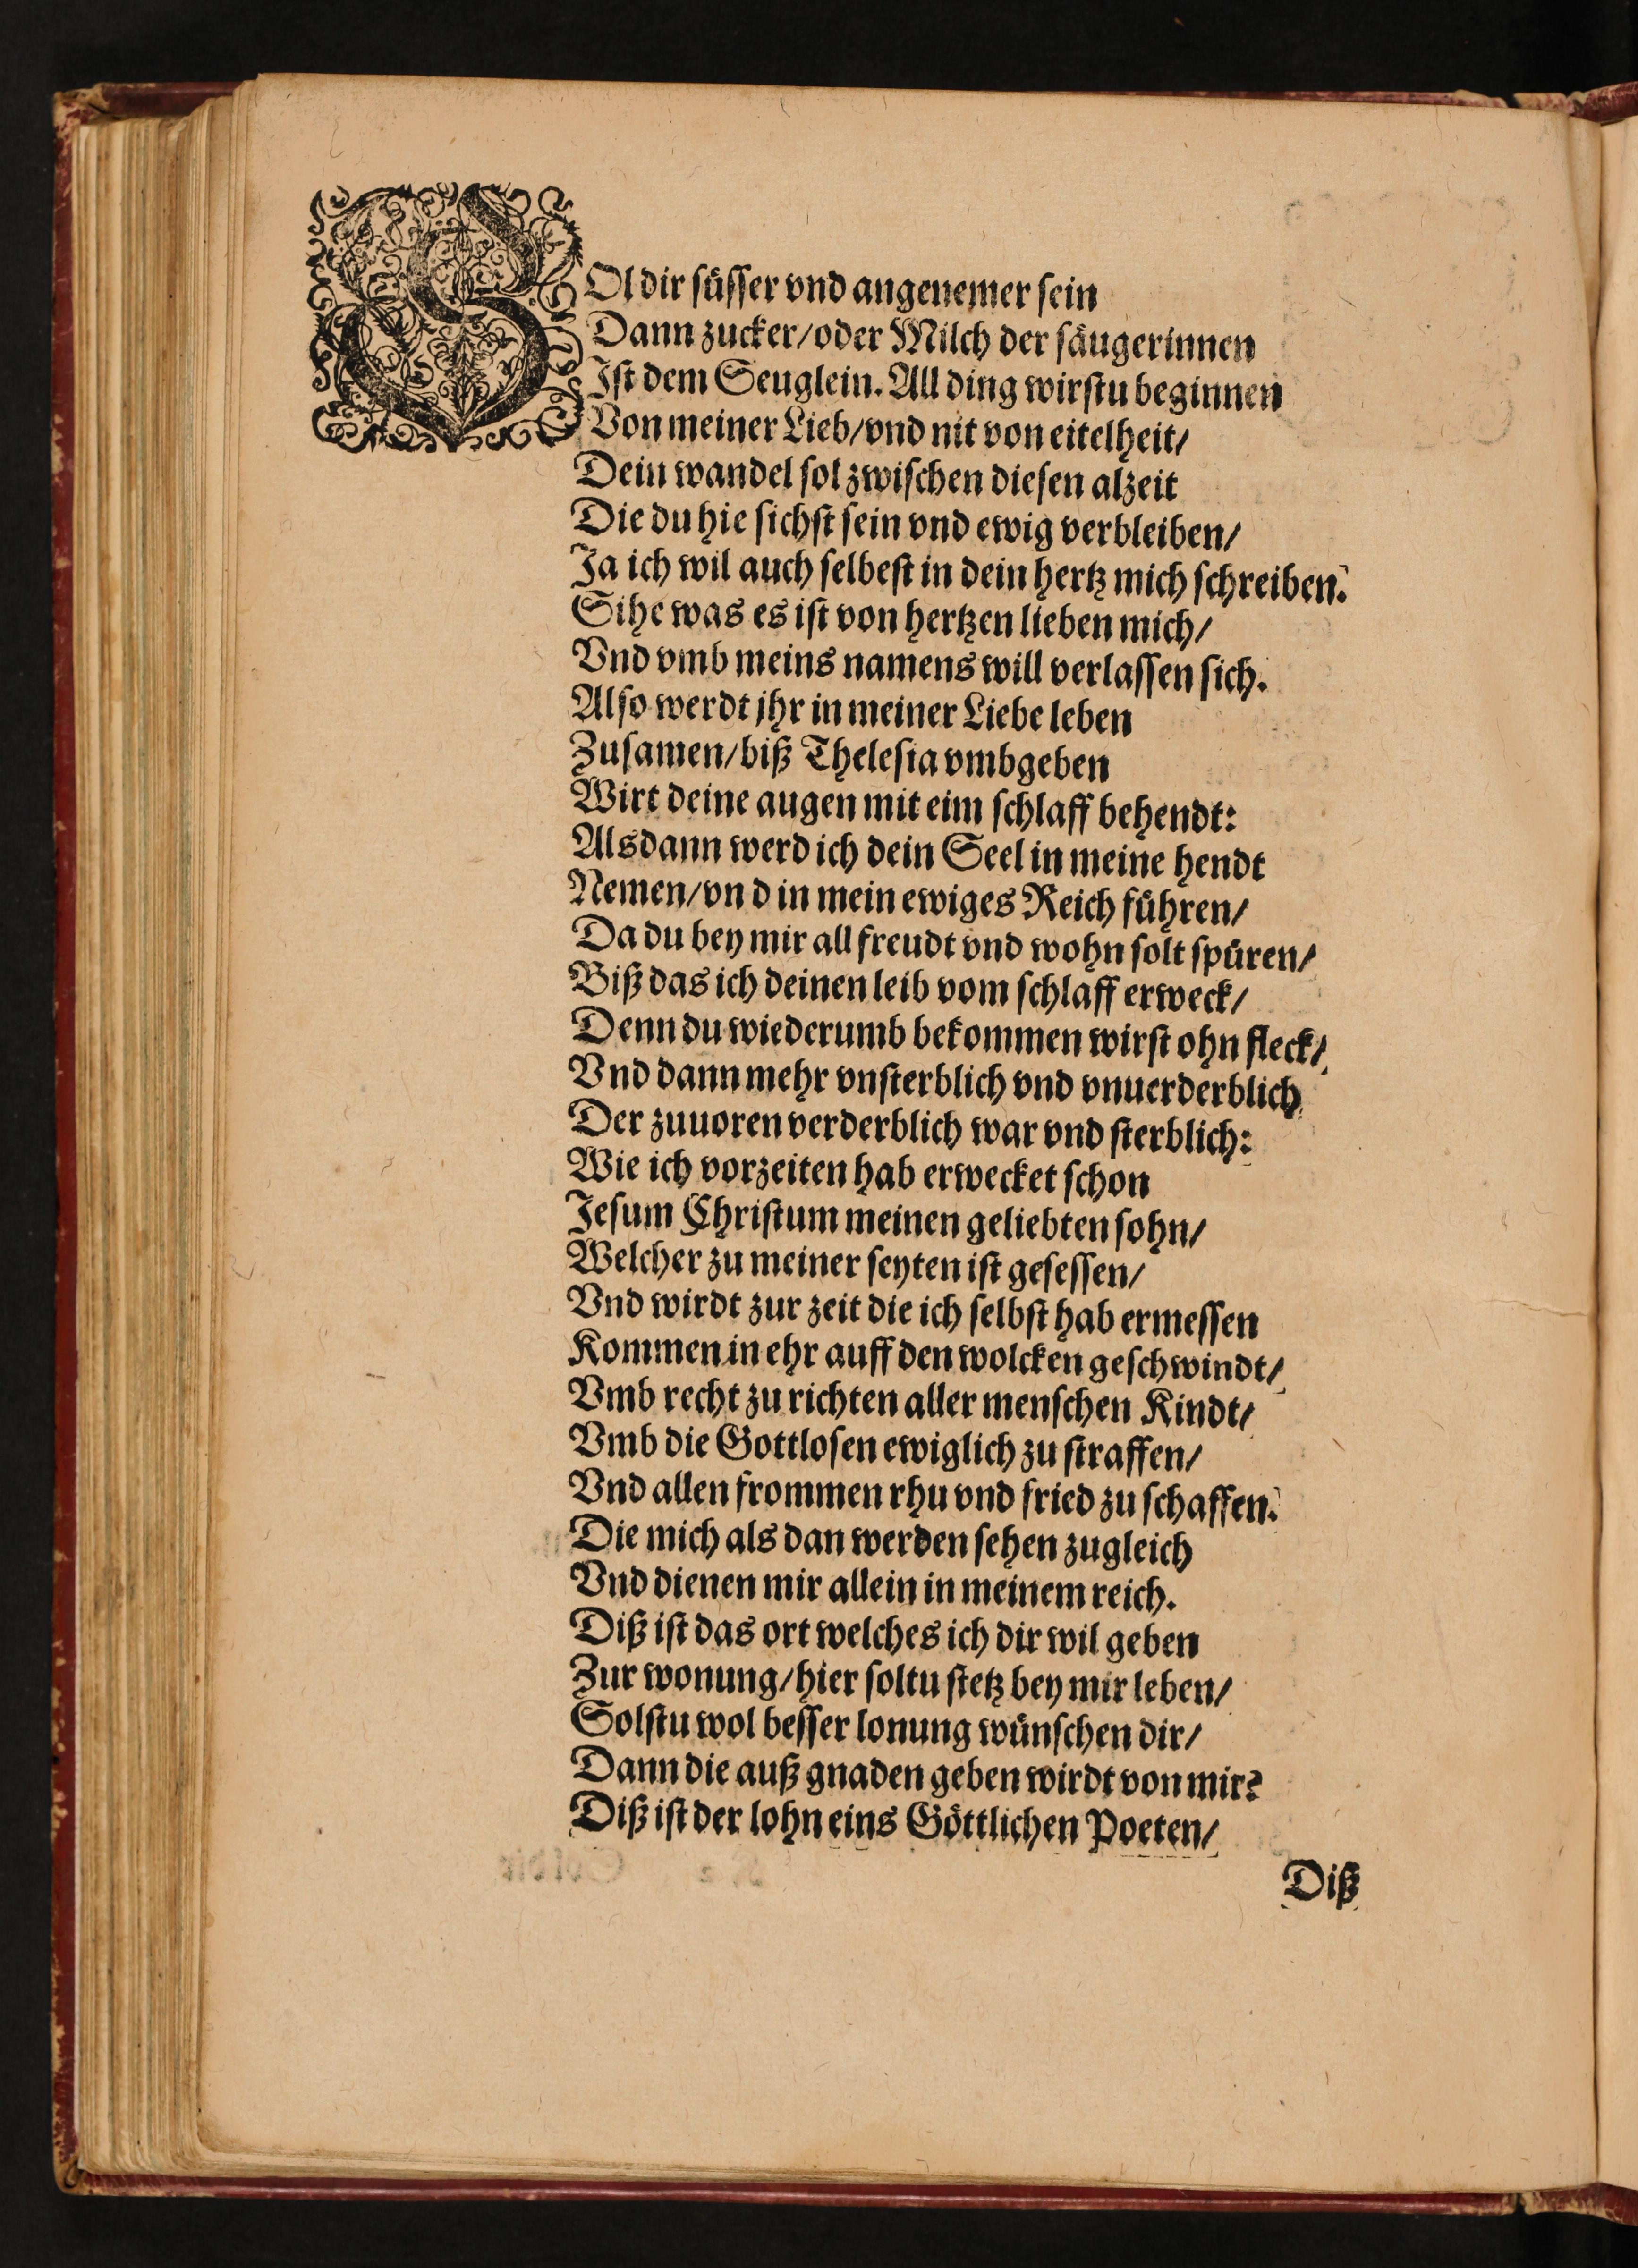 SOl dir süsser vnd angenemer sein
Dann zucker/ oder Milch der säugerinnen
Ist dem Seuglein. All ding wirstu beginnen
Von meiner Lieb/ vnd nit von eitelheit/
Dein wandel sol zwischen diesen alzeit
Die du hie sichst sein vnd ewig verbleiben/
Ja ich wil auch selbest in dein hertz mich schreiben.
Sihe was es ist von hertzen lieben mich/
Vnd vmb meins namens will verlassen sich.
Also werdt jhr in meiner Liebe leben
Zusamen/ biß Thelesia vmbgeben
Wirt deine augen mit eim schlaff behendt:
Alsdann werd ich dein Seel in meine hendt
Nemen/ vn d in mein ewiges Reich führen/
Da du bey mir all freudt vnd wohn solt spüren/
Biß das ich deinen leib vom schlaff erweck/
Denn du wiederumb bekommen wirst ohn fleck/
Vnd dann mehr vnsterblich vnd vnuerderblich
Der zuuoren verderblich war vnd sterblich:
Wie ich vorzeiten hab erwecket schon
Jesum Christum meinen geliebten sohn/
Welcher zu meiner seyten ist gesessen/
Vnd wirdt zur zeit die ich selbst hab ermessen
Kommen in ehr auff den wolcken geschwindt/
Vmb recht zu richten aller menschen Kindt/
Vmb die Gottlosen ewiglich zu straffen/
Vnd allen frommen rhu vnd fried zu schaffen.
Die mich als dan werden sehen zugleich
Vnd dienen mir allein in meinem reich.
Diß ist das ort welches ich dir wil geben
Zur wonung/ hier soltu stetz bey mir leben/
Solstu wol besser lonung wünschen dir/
Dann die auß gnaden geben wirdt von mir?
Diß ist der lohn eins Göttlichen Poeten/
Diß